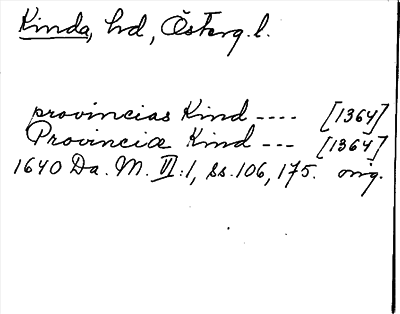 Kinda, hd, Österg.l.
provincias Kind ---- [1364]
Provincia Kind --- [1364]
1640 Da. M. VI:1, ss. 106, 175. orig.